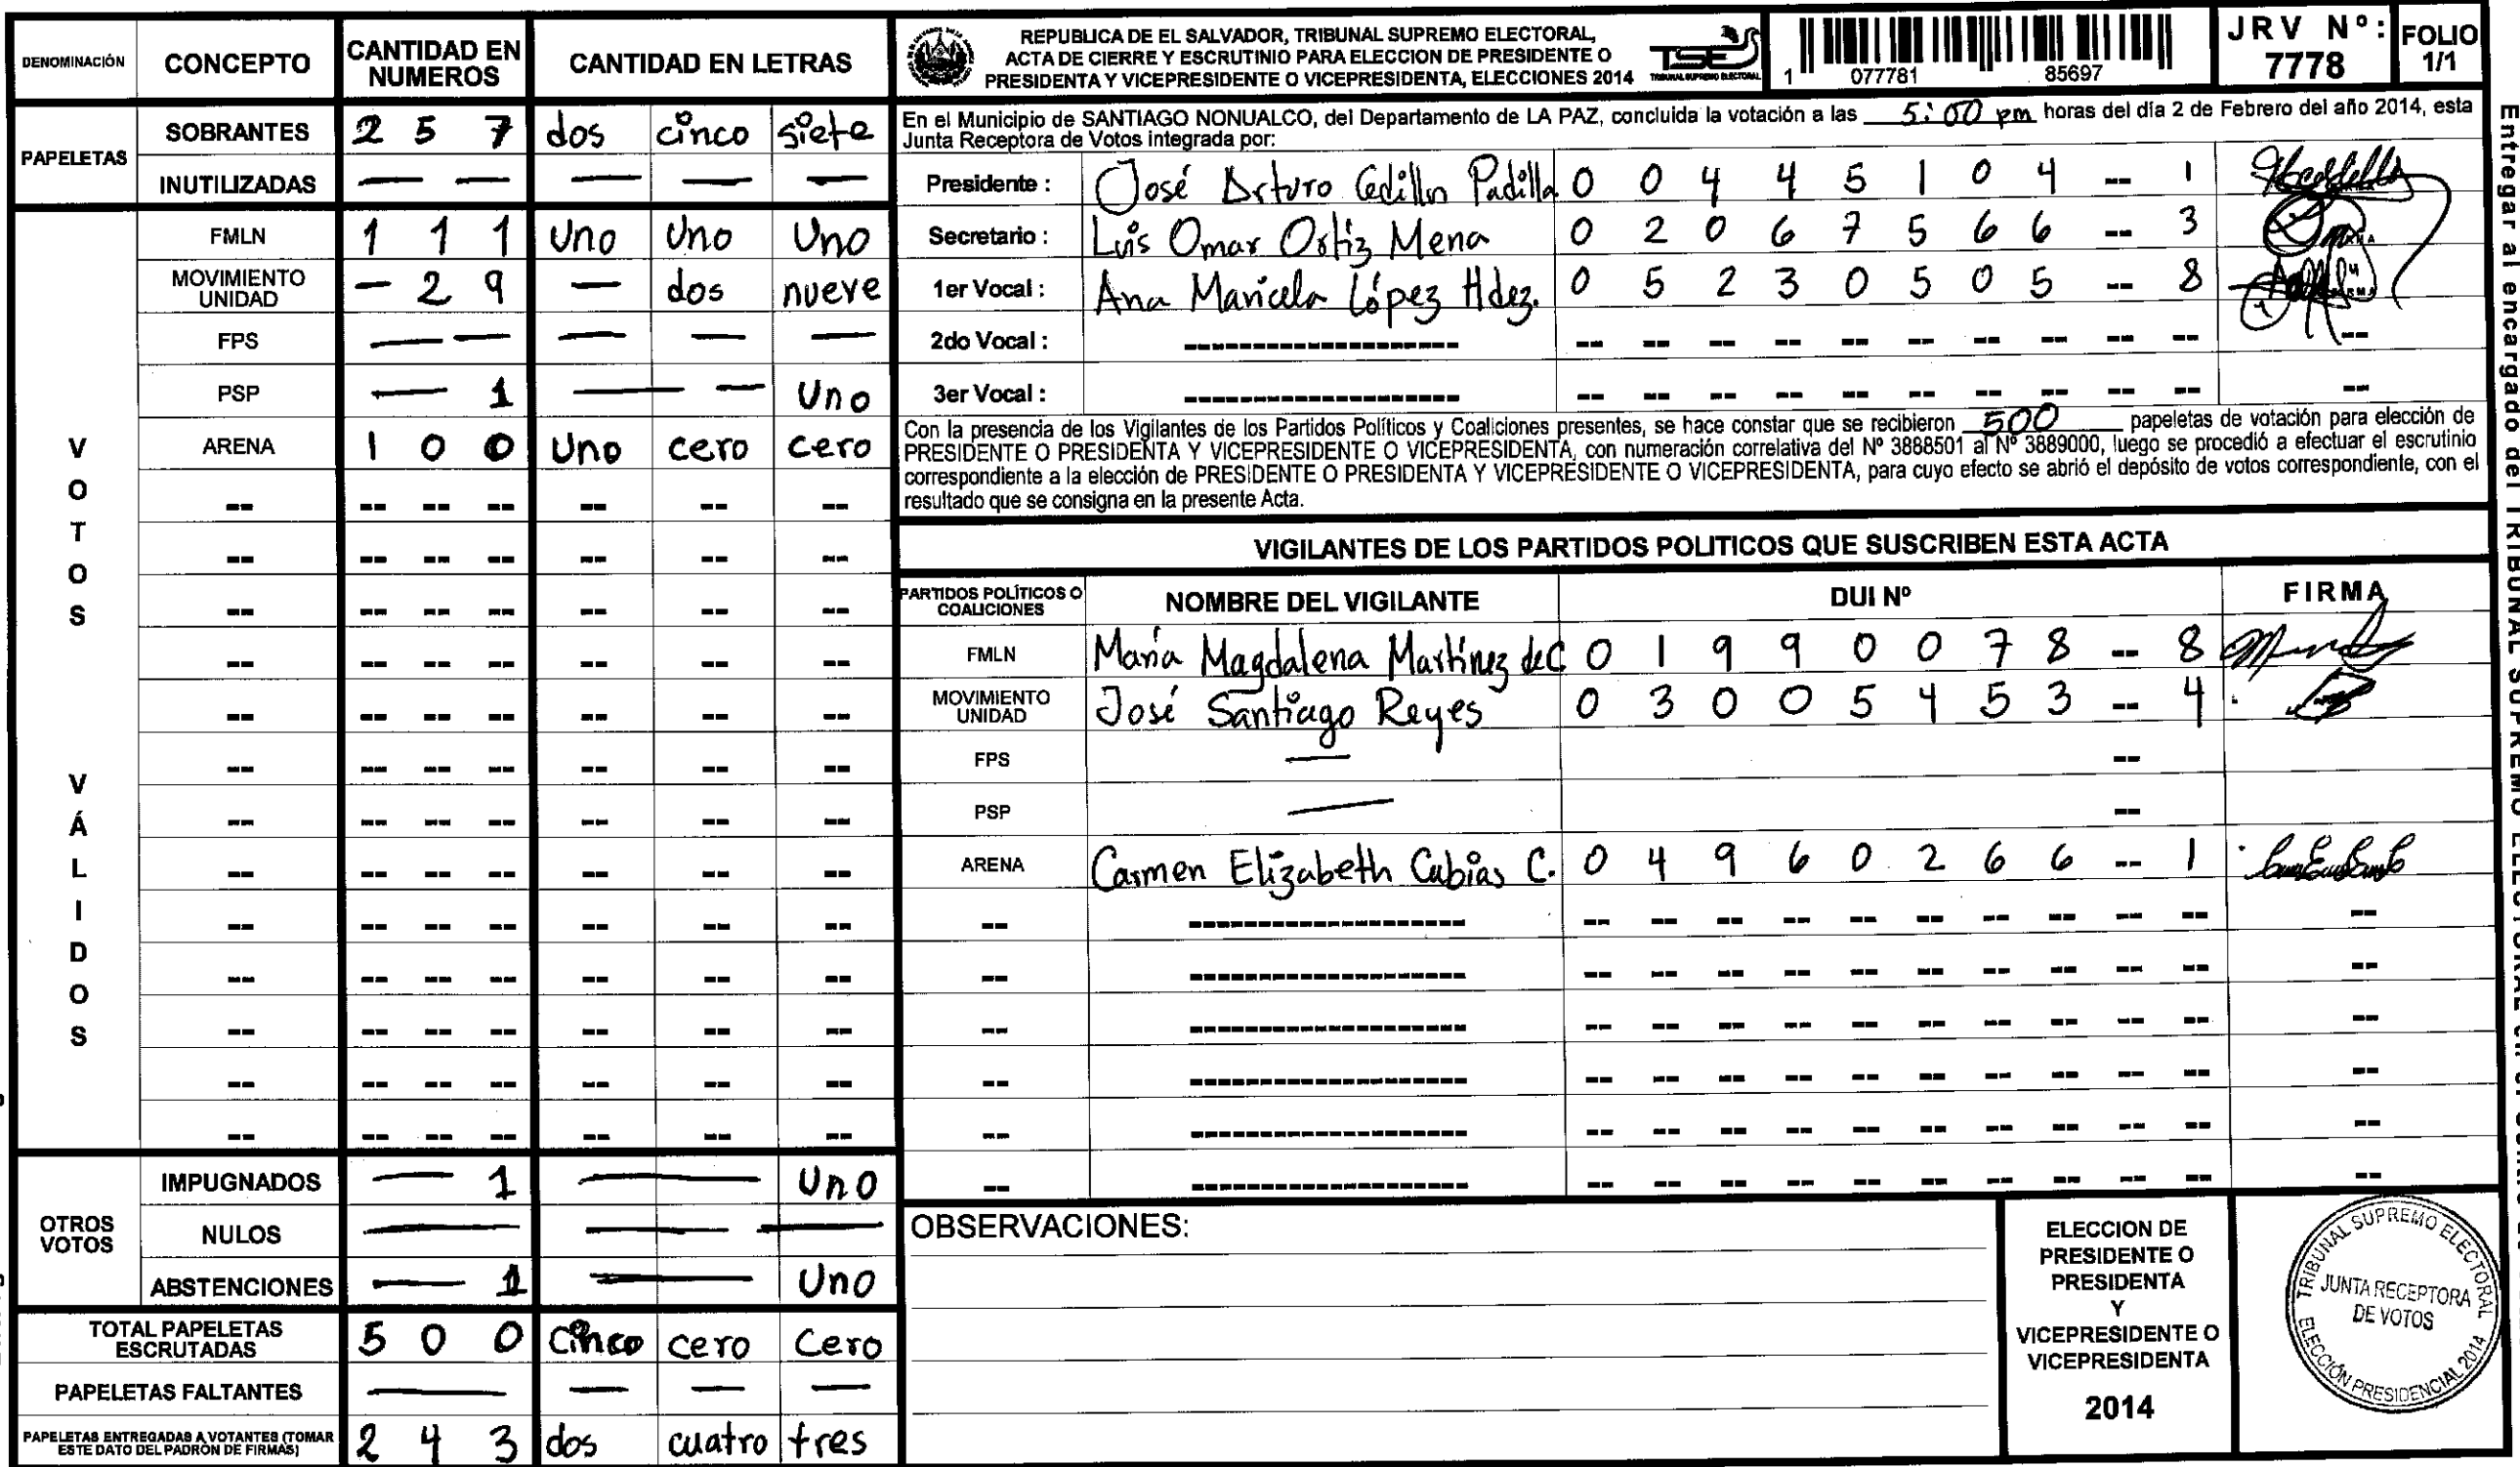 DENOMINACIÓN CONCEPTO CANTIDAD EN NUMEROS CANTIDAD EN LETRAS
PAPELETAS
SOBRANTES 2 5 7 dos cinco siete
INUTILIZADAS — — — — —
VOTOS VÁLIDOS
FMLN 1 1 1 Uno Uno Uno
MOVIMIENTO UNIDAD — 2 9 — dos nueve
FPS — — — — —
PSP — 1 — — Uno
ARENA 1 0 0 Uno cero cero
-- -- -- -- -- -- --
-- -- -- -- -- -- --
-- -- -- -- -- -- --
-- -- -- -- -- -- --
-- -- -- -- -- -- --
-- -- -- -- -- -- --
-- -- -- -- -- -- --
-- -- -- -- -- -- --
-- -- -- -- -- -- --
-- -- -- -- -- -- --
-- -- -- -- -- -- --
-- -- -- -- -- -- --
-- -- -- -- -- -- --
OTROS VOTOS
IMPUGNADOS — 1 — Uno
NULOS — — —
ABSTENCIONES — 1 — Uno
TOTAL PAPELETAS ESCRUTADAS 5 0 0 Cinco cero Cero
PAPELETAS FALTANTES — — — —
PAPELETAS ENTREGADAS A VOTANTES (TOMAR ESTE DATO DEL PADRON DE FIRMAS) 2 4 3 dos cuatro tres
REPUBLICA DE EL SALVADOR, TRIBUNAL SUPREMO ELECTORAL,
ACTA DE CIERRE Y ESCRUTINIO PARA ELECCION DE PRESIDENTE O
PRESIDENTA Y VICEPRESIDENTE O VICEPRESIDENTA, ELECCIONES 2014
TSE
TRIBUNAL SUPREMO ELECTORAL
1 077781 85697
JRV Nº: 7778
FOLIO 1/1
En el Municipio de SANTIAGO NONUALCO, del Departamento de LA PAZ, concluida la votación a las 5:00 pm horas del día 2 de Febrero del año 2014, esta
Junta Receptora de Votos integrada por:
Presidente : José Arturo Cedillo Padilla 0 0 4 4 5 1 0 4 -- 1
Secretario : Luis Omar Ortiz Mena 0 2 0 6 7 5 6 6 -- 3
1er Vocal : Ana Maricela López Hdez. 0 5 2 3 0 5 0 5 -- 8
2do Vocal : ------------------- -- -- -- -- -- -- -- -- -- -- --
3er Vocal : ------------------- -- -- -- -- -- -- -- -- -- -- --
Con la presencia de los Vigilantes de los Partidos Políticos y Coaliciones presentes, se hace constar que se recibieron 500 papeletas de votación para elección de
PRESIDENTE O PRESIDENTA Y VICEPRESIDENTE O VICEPRESIDENTA, con numeración correlativa del Nº 3888501 al Nº 3889000, luego se procedió a efectuar el escrutinio
correspondiente a la elección de PRESIDENTE O PRESIDENTA Y VICEPRESIDENTE O VICEPRESIDENTA, para cuyo efecto se abrió el depósito de votos correspondiente, con el
resultado que se consigna en la presente Acta.
VIGILANTES DE LOS PARTIDOS POLITICOS QUE SUSCRIBEN ESTA ACTA
PARTIDOS POLÍTICOS O COALICIONES NOMBRE DEL VIGILANTE DUI Nº FIRMA
FMLN María Magdalena Martínez de C 0 1 9 9 0 0 7 8 -- 8
MOVIMIENTO UNIDAD José Santiago Reyes 0 3 0 0 5 4 5 3 -- 4
FPS — --
PSP — --
ARENA Carmen Elizabeth Cubias C. 0 4 9 6 0 2 6 6 -- 1
-- ------------------- -- -- -- -- -- -- -- -- -- -- --
-- ------------------- -- -- -- -- -- -- -- -- -- -- --
-- ------------------- -- -- -- -- -- -- -- -- -- -- --
-- ------------------- -- -- -- -- -- -- -- -- -- -- --
-- ------------------- -- -- -- -- -- -- -- -- -- -- --
-- ------------------- -- -- -- -- -- -- -- -- -- -- --
OBSERVACIONES:
ELECCION DE
PRESIDENTE O
PRESIDENTA
Y
VICEPRESIDENTE O
VICEPRESIDENTA
2014
TRIBUNAL SUPREMO ELECTORAL
JUNTA RECEPTORA
DE VOTOS
ELECCIÓN PRESIDENCIAL 2014
Entregar al encargado del TRIBUNAL SUPREMO ELECTORAL